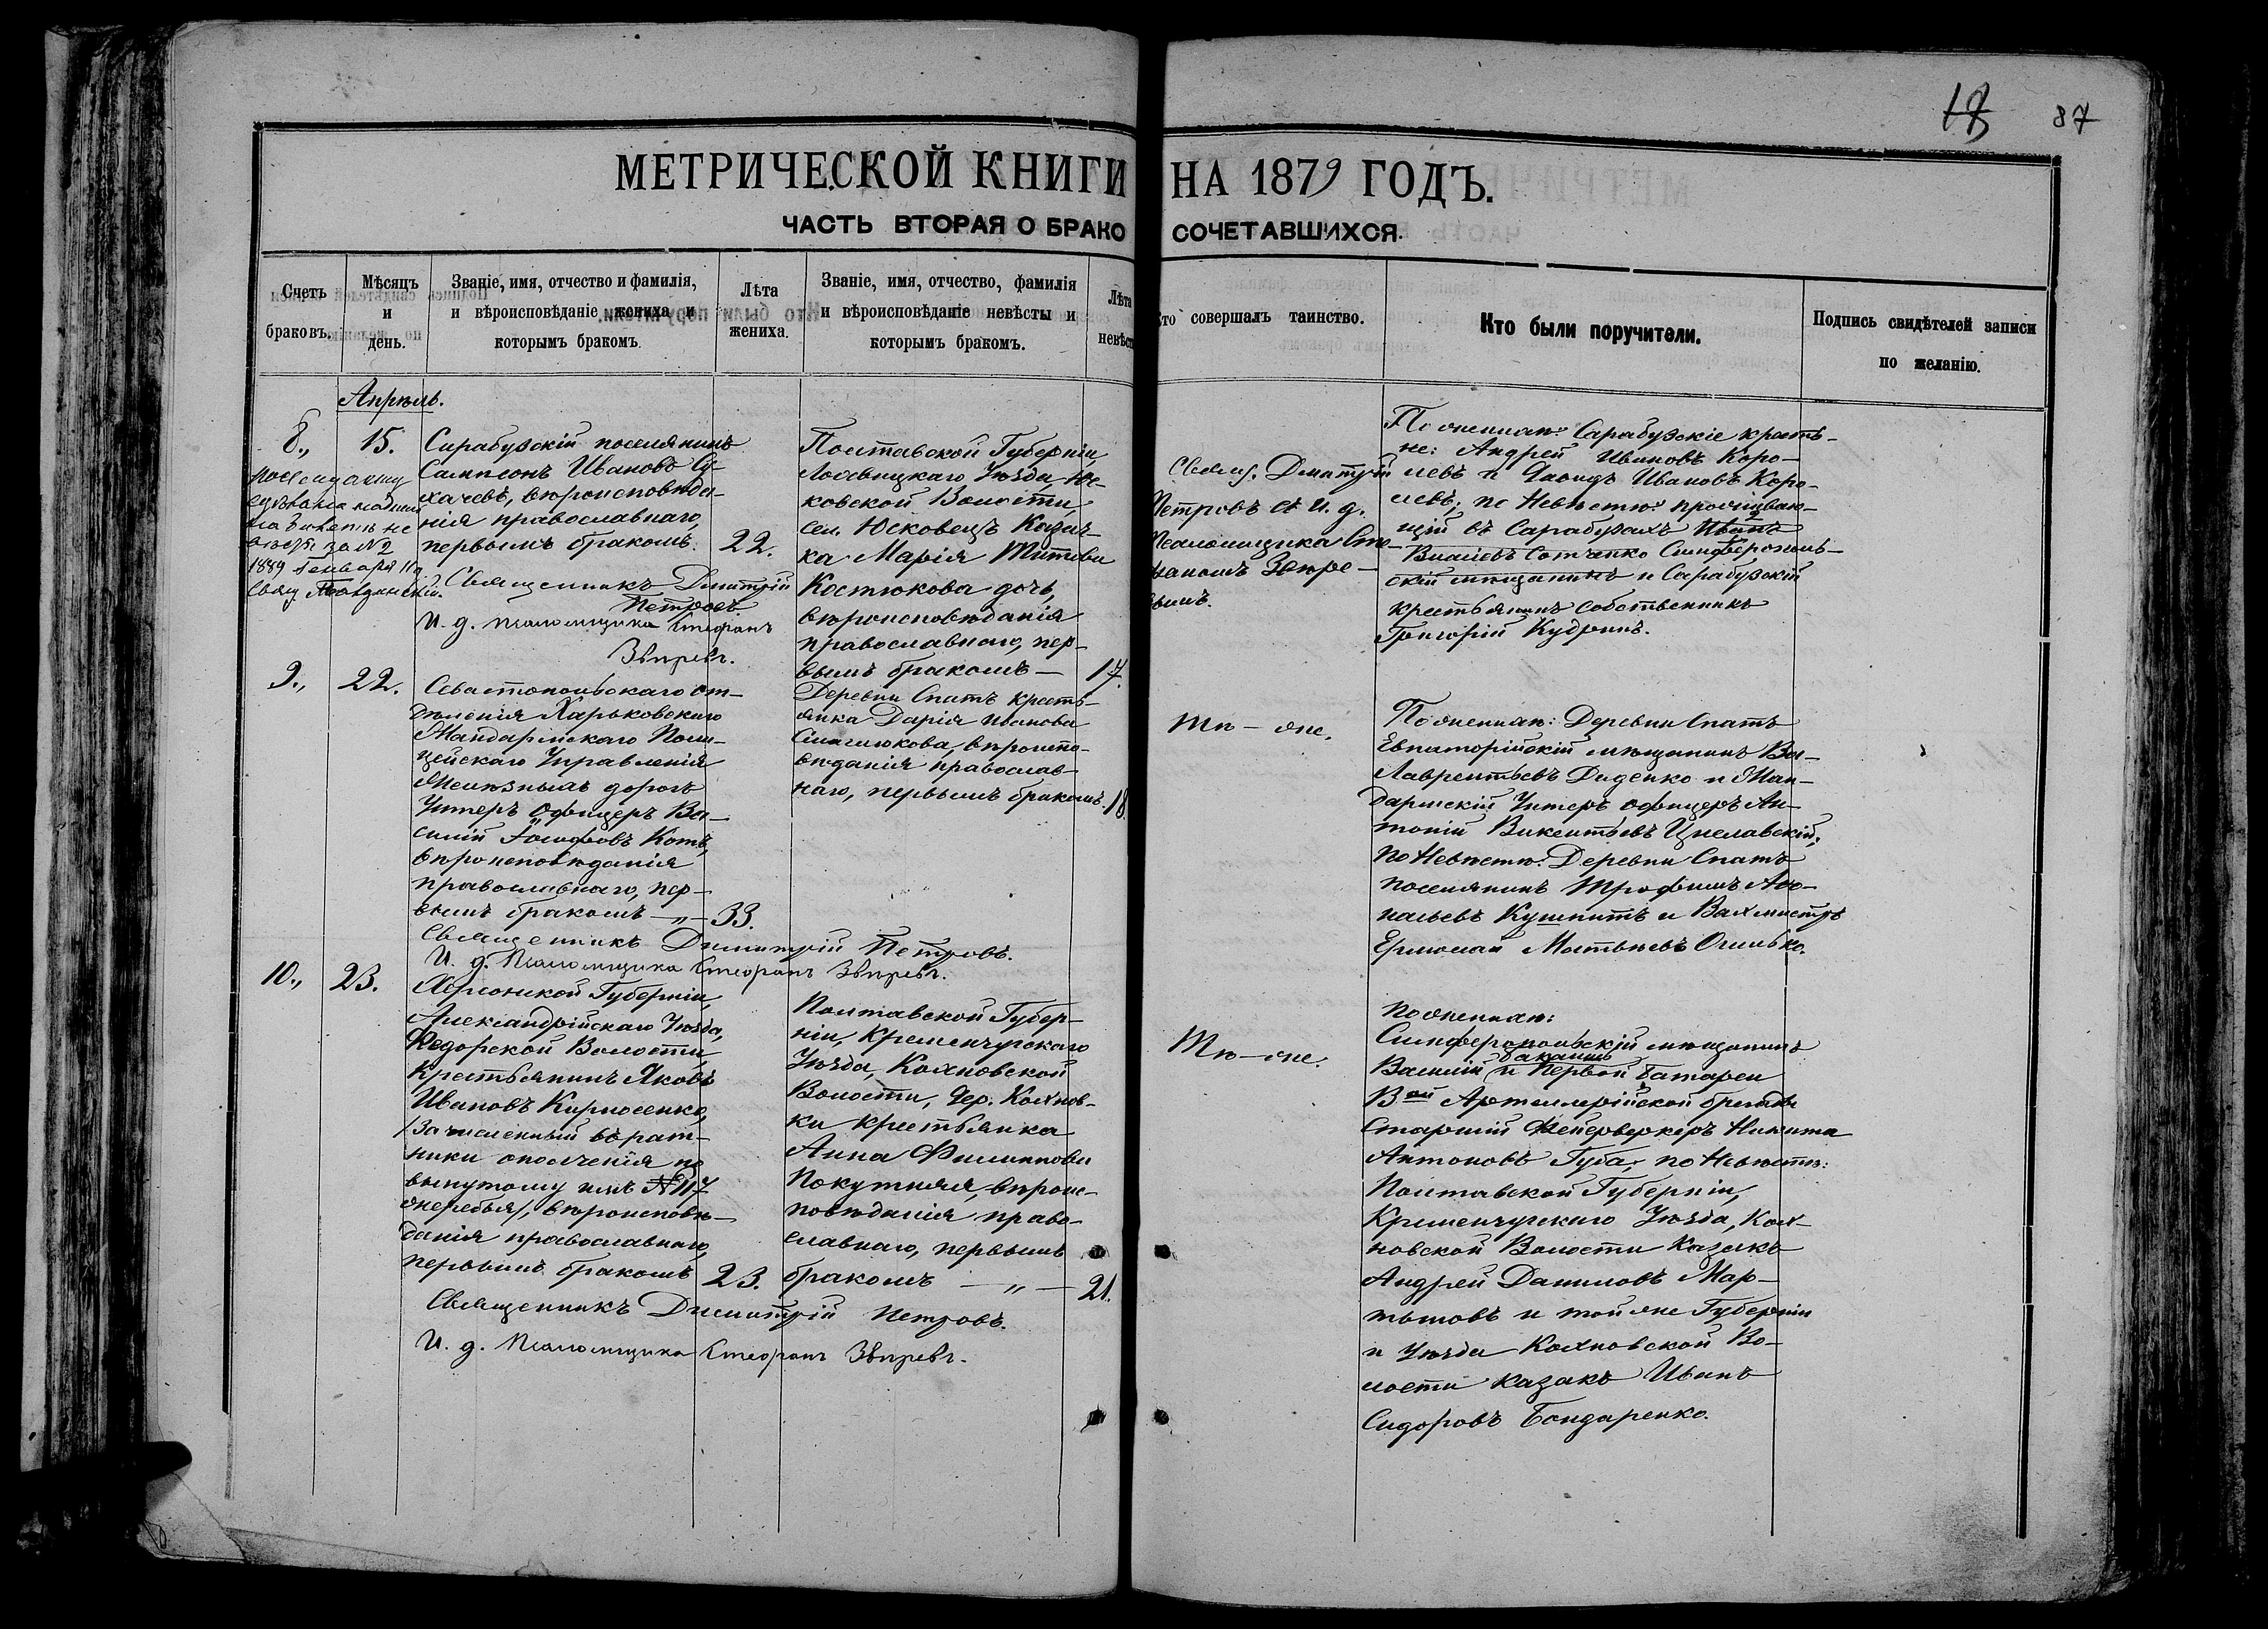 18 87
МЕТРИЧЕСКОЙ КНИГИ НА 1879 ГОДЪ.
ЧАСТЬ ВТОРАЯ О БРАКОСОЧЕТАВШИХСЯ.
Счетъ браковъ.
Мѣсяцъ и день.
Званіе, имя, отчество и фамилія,
и вѣроисповѣданіе жениха и
которымъ бракомъ.
Лѣта
жениха.
Званіе, имя, отчество, фамилія
и вѣроисповѣданіе невѣсты и
которымъ бракомъ.
Лѣта
невѣст
то совершалъ таинство.
Кто были поручители.
Подпись свидѣтелей записи
по желанію.
Апрѣль.
8., 15.
за №2
1889 января 11 д.
Свящ.
Сарабузскій поселянинъ
Сампсонъ Ивановъ Су-
хачевъ, вѣроисповѣда-
нія православнаго,
первымъ бракомъ. 22.
Священникъ Димитрій
Петровъ
И. д. псаломщика Стефанъ
Звѣревъ.
Полтавской Губерніи,
Лохвицкаго Уѣзда, Юс-
ковской Волости,
сел. Юсковецъ Козач-
ка Марія Титова
Костюкова дочь,
вѣроисповѣданія
православнаго, пер-
вымъ бракомъ — 17.
Свящ. Дмитрій
Петровъ съ и. д.
Псаломщика Сте-
фаномъ Звѣре-
вымъ.
По женихѣ: Сарабузскіе кресть-
не: Андрей Ивановъ Коро-
левъ и Давидъ Ивановъ Коро-
левъ; по Невѣстѣ: проживаю-
щій въ Сарабузахъ Иванъ
Власіевъ Сотченко Симферополь-
скій мѣщанинъ и Сарабузскій
крестьянинъ собственникъ
Григорій Кудринъ.
9., 22.
Севастопольскаго от-
дѣленія Харьковскаго
Жандармскаго Поли-
цейскаго Управленія
Желѣзныхъ дорогъ
Унтеръ Офицеръ Ва-
силій Іосифовъ Котъ,
вѣроисповѣданія
православнаго, пер-
вымъ бракомъ — „ — 33.
Священникъ Димитрій Петровъ.
И. д. Псаломщика Стефанъ Звѣревъ.
Деревни Спатъ кресть-
янка Дарія Иванова
вѣроиспо-
вѣданія православ-
наго, первымъ бракомъ. 18.
Тѣ — же.
По женихѣ: Деревни Спатъ
Евпаторійскій мѣщанинъ Ва-
Лаврентьевъ Диденко и Жан-
дармскій Унтеръ Офицеръ Ан-
тоній Викентьевъ Цнелавскій;
по Невѣстѣ: Деревни Спатъ
поселянинъ Трофимъ Аѳо-
насьевъ Кушнитъ и Вахмистръ
Ермолай Матвѣевъ
10., 23.
Херсонской Губерніи,
Александрійскаго Уѣзда,
Ѳедорской Волости,
Крестьянинъ Яковъ
Ивановъ Карносенко,
/Зачисленный въ рат-
ники ополченія по
вынутому имъ №117
жеребья/, вѣроисповѣ-
данія православнаго,
первымъ бракомъ 23.
Священникъ Димитрій Петровъ.
И. д. Псаломщика Стефанъ Звѣревъ.
Полтавской Губер-
ніи, Кременчугскаго
Уѣзда, Кохновской
Волости, дер. Кохнов-
ки крестьянка
Анна Филиппова
Покутняя, вѣроис-
повѣданія право-
славнаго, первымъ
бракомъ — „ — 21.
Тѣ — же.
По женихѣ:
Симферопольскій мѣщанинъ
Василій и Первой Батареи
13ой Артиллерійской бригады
Старшій Фейерверкеръ Никита
Антоновъ Губа; по Невѣстѣ:
Полтавской Губерніи,
Кременчугскаго Уѣзда, Кох-
новской Волости Казакъ
Андрей Даниловъ Мар-
тыновъ и той же Губерніи
и Уѣзда Кохновской Во-
лости казакъ Иванъ
Сидоровъ Бондаренко.